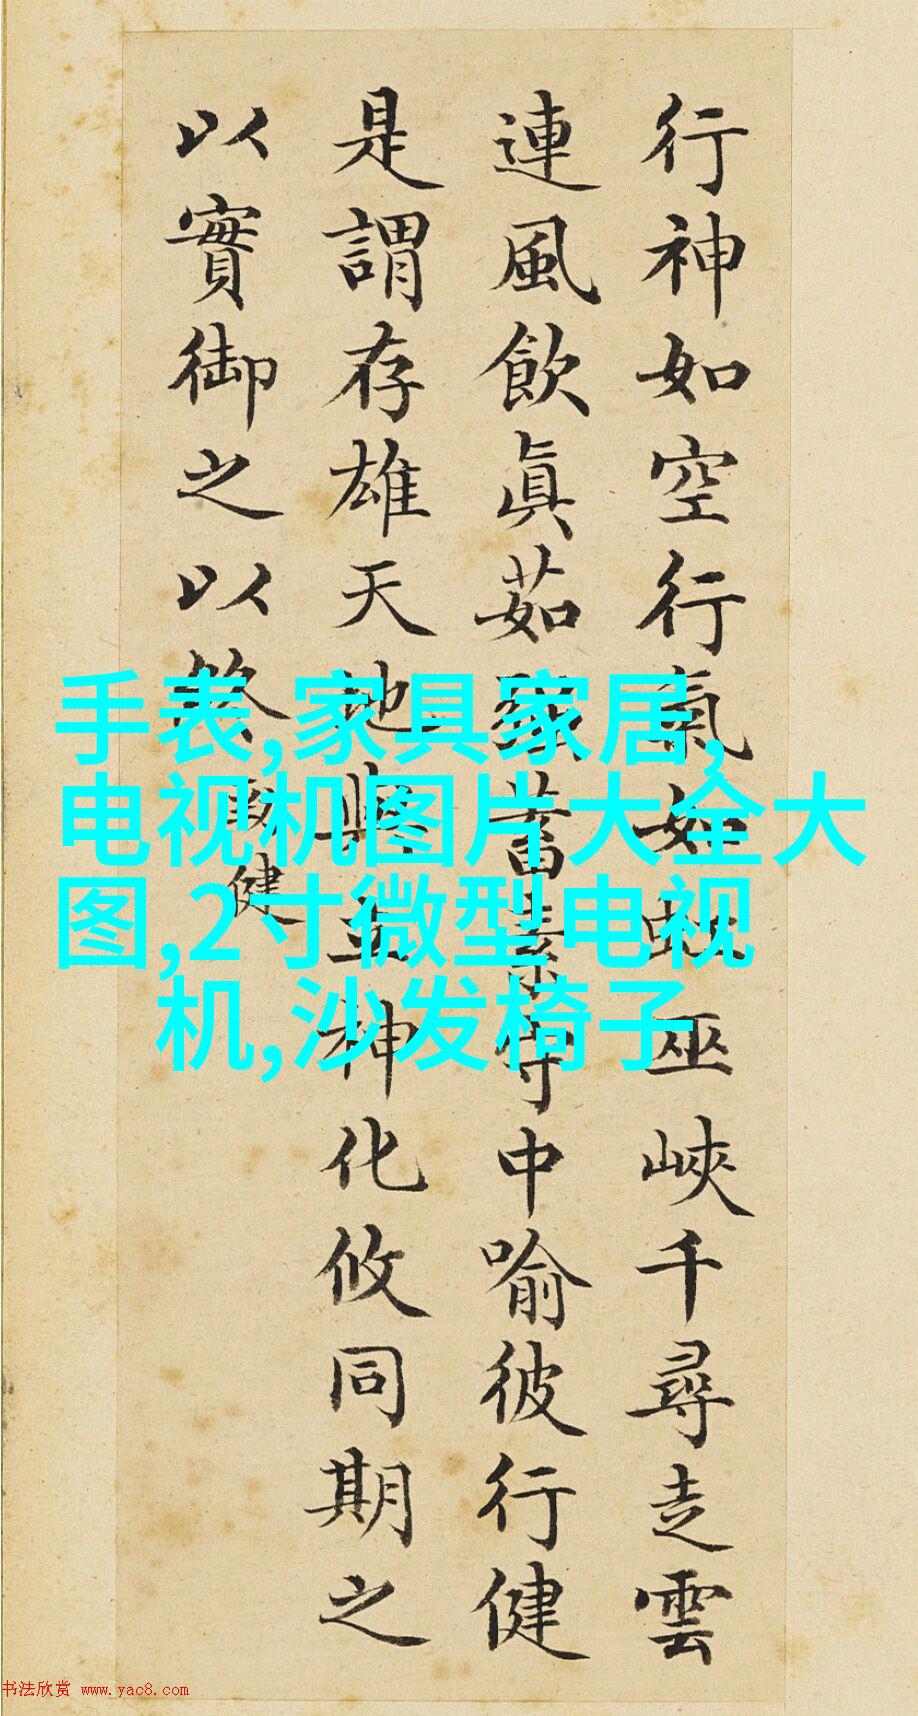 行神如空行氣如虹巫峽千尋走雲
連風飲眞茹強蓄素守中喻彼行健
是謂存雄天地與立神化攸同期之
以實御之以終
勁健
手表,家具家居,
电视机图片大全大
图,2寸微型电视
机,沙发椅子
书法欣赏 www.yac8.com